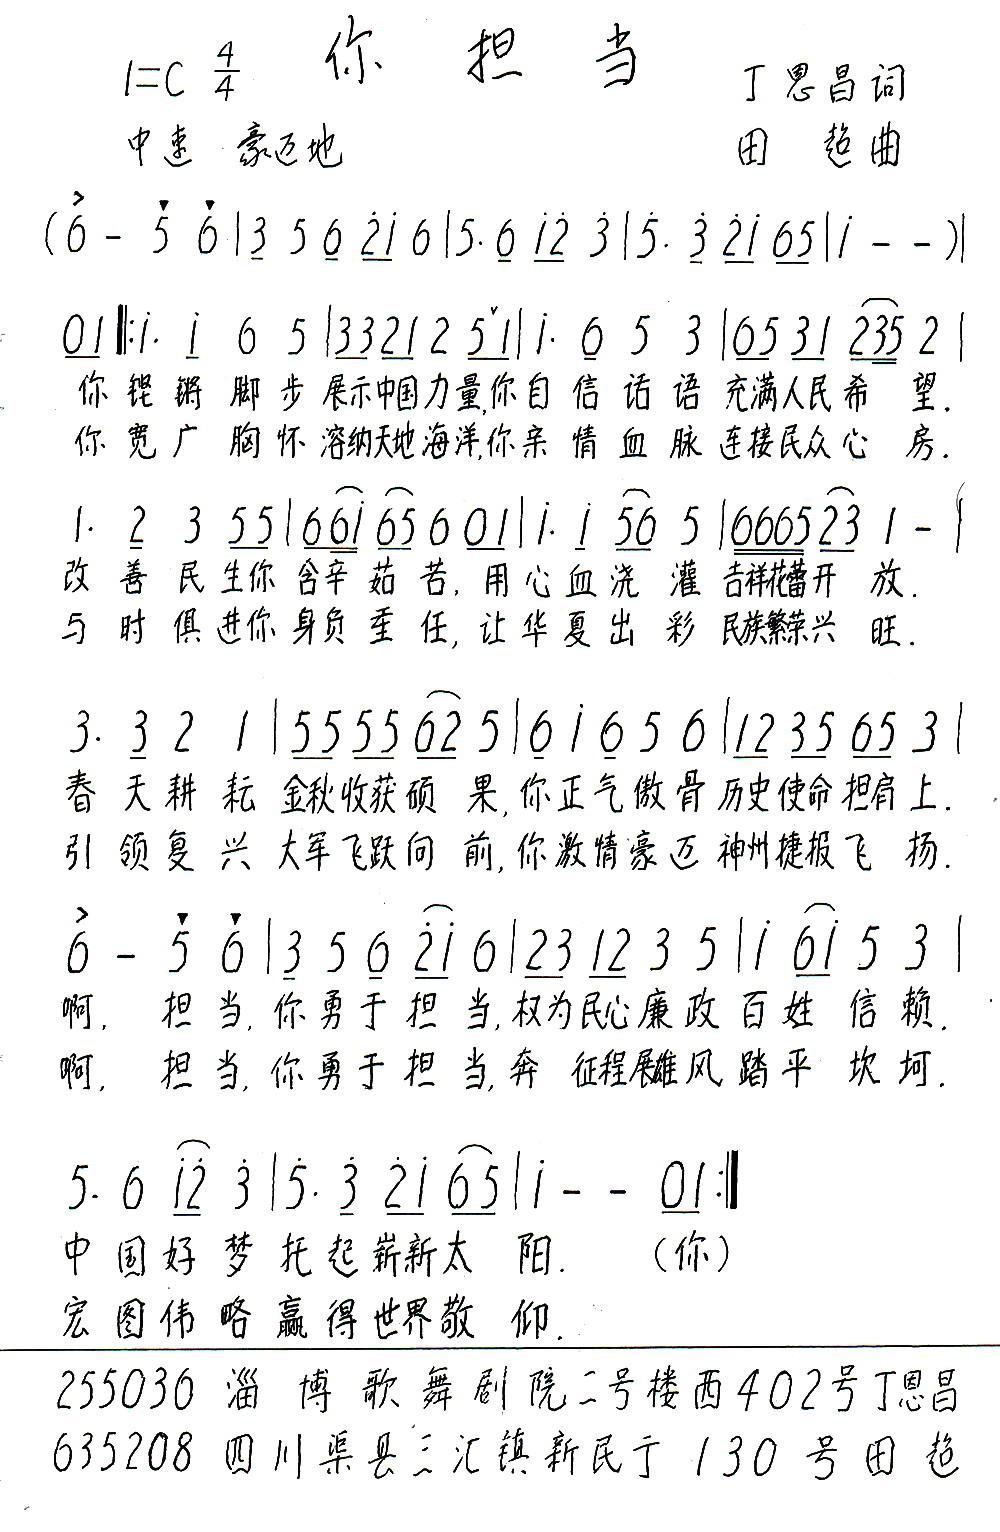 你担当
1=C 4/4
丁恩昌词
中速 豪迈地
田超曲
(6 - 5 6 | 3 5 6 2̇1̇ 6 | 5. 6 1̇2̇ 3̇ | 5. 3̇ 2̇1̇ 65 | 1̇ - - )|
01 ‖: 1̇. 1̇ 6 5 | 3321 2 5 1 | 1̇. 6 5 3 | 6531 235 2 |
你铿锵脚步展示中国力量,你自信话语充满人民希望.
你宽广胸怀溶纳天地海洋,你亲情血脉连接民众心房.
1. 2 3 55 | 661̇ 65 6 01 | 1̇. 1̇ 56 5 | 666523 1 - |
改善民生你含辛茹苦,用心血浇灌吉祥花蕾开放.
与时俱进你身负重任,让华夏出彩民族繁荣兴旺.
3. 3 2 1 | 5555 62 5 | 6 1̇ 6 5 6 | 1235 65 3 |
春天耕耘金秋收获硕果,你正气傲骨历史使命担肩上.
引领复兴大军飞跃向前,你激情豪迈神州捷报飞扬.
6 - 5 6 | 3 5 6 2̇1̇ 6 | 23 12 3 5 | 1̇ 61̇ 5 3 |
啊,担当,你勇于担当,权为民心廉政百姓信赖.
啊,担当,你勇于担当,奔征程展雄风踏平坎坷.
5. 6 1̇2̇ 3̇ | 5. 3̇ 2̇1̇ 65 | 1̇ - - 01 :‖
中国好梦托起崭新太阳. (你)
宏图伟略赢得世界敬仰.
255036 淄博歌舞剧院二号楼西402号丁恩昌
635208 四川渠县三汇镇新民于130号田超